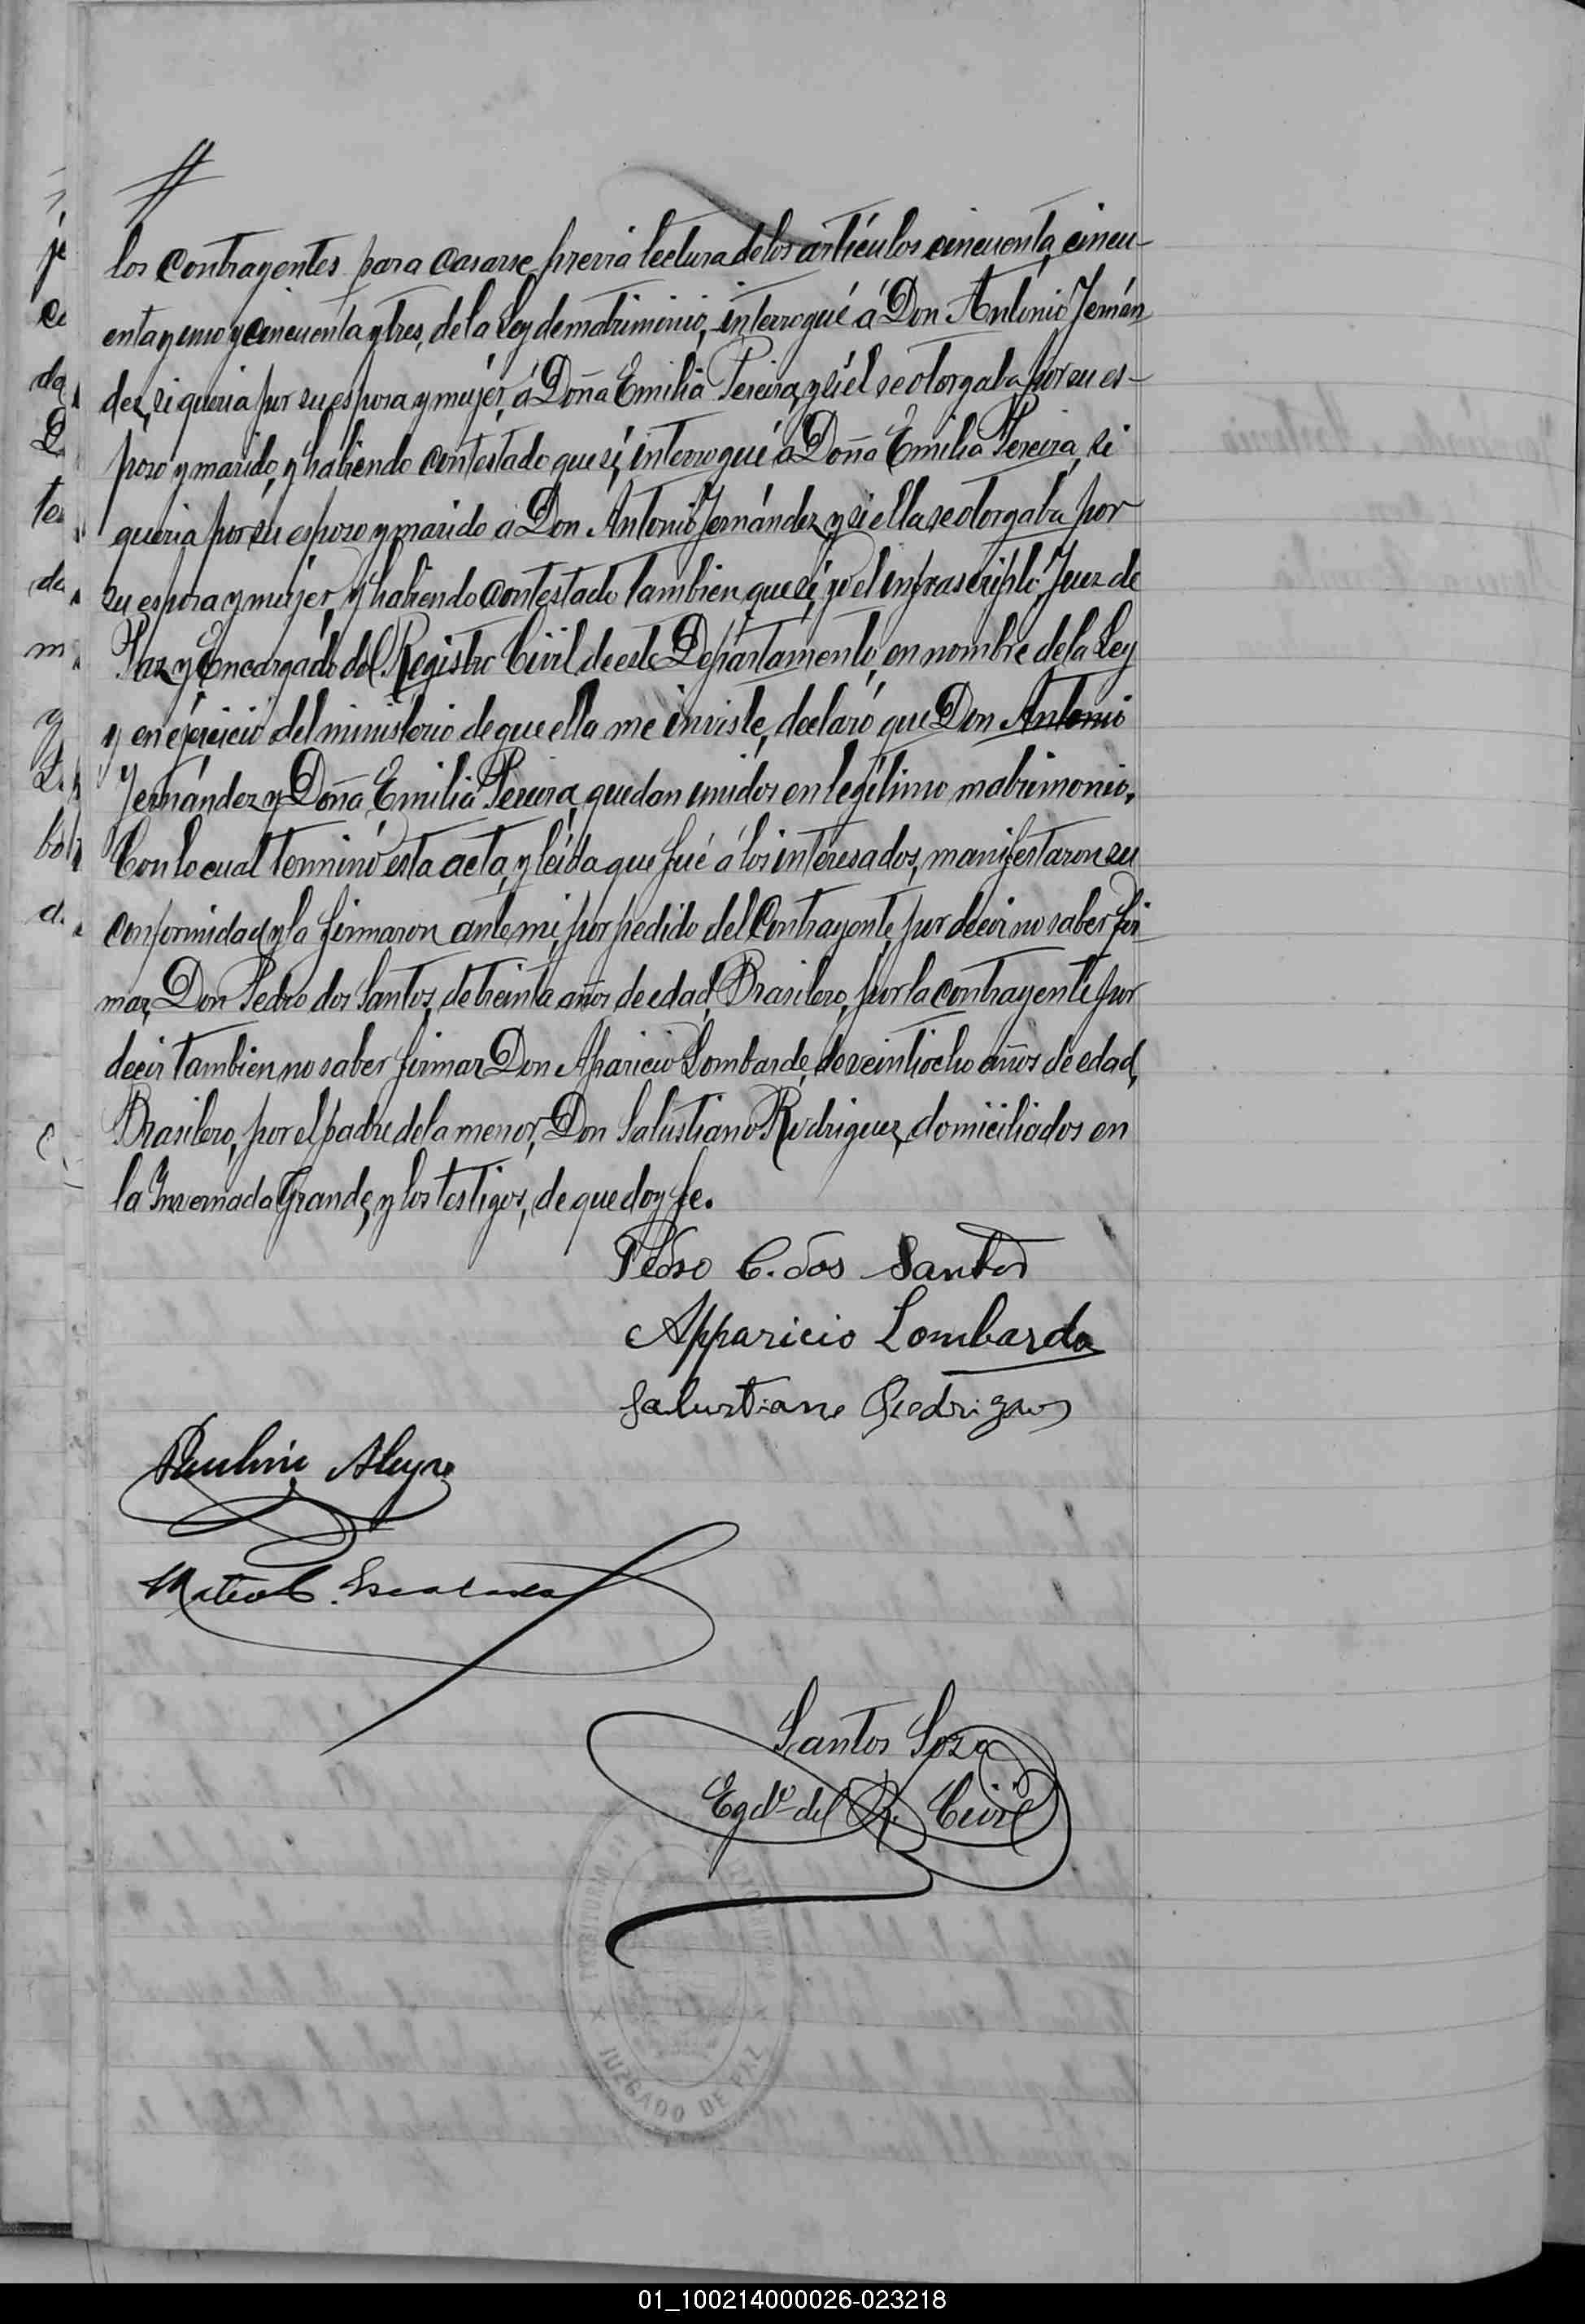 los contrayentes para casarse, previa lectura de los artículos cincuenta, cincu-
enta y uno y cincuenta y tres, de la Ley de matrimonio, interrogué á Don Antonio Fernán-
dez, si queria por su esposa y mujer, á Doña Emilia Pereira, y si él se otorgaba por su es-
poso y marido, y habiendo contestado que sí, interrogué á Doña Emilia Pereira, si
queria por su esposo y marido á Don Antonio Fernández y si ella se otorgaba por
su esposa y mujer, y habiendo contestado tambien que sí, yo el infrascripto Juez de
Paz y Encargado del Registro Civil de este Departamento, en nombre de la Ley
y en ejercicio del ministerio de que ella me inviste, declaró que Don Antonio
Fernández y Doña Emilia Pereira, quedan unidos en legítimo matrimonio.
Con lo cual terminó esta acta, y leída que fué á los interesados, manifestaron su
conformidad y la firmaron ante mi, por pedido del Contrayente, por decir no saber fir-
mar, Don Pedro dos Santos, de treinta años de edad, Brasilero, por la contrayente por
decir tambien no saber firmar Don Aparicio Lombarde, de veintiocho años de edad,
Brasilero, por el padre de la menor, Don Salustiano Rodriguez, domiciliados en
la Invernada Grande, y los testigos, de que doy fe.
Pedro C. dos Santos
Apparicio Lombarda
Salustiano Rodrigues
Mateo C.
Santos Soza
Egdo. del R. Civil
JUZGADO DE PAZ
01_100214000026-023218